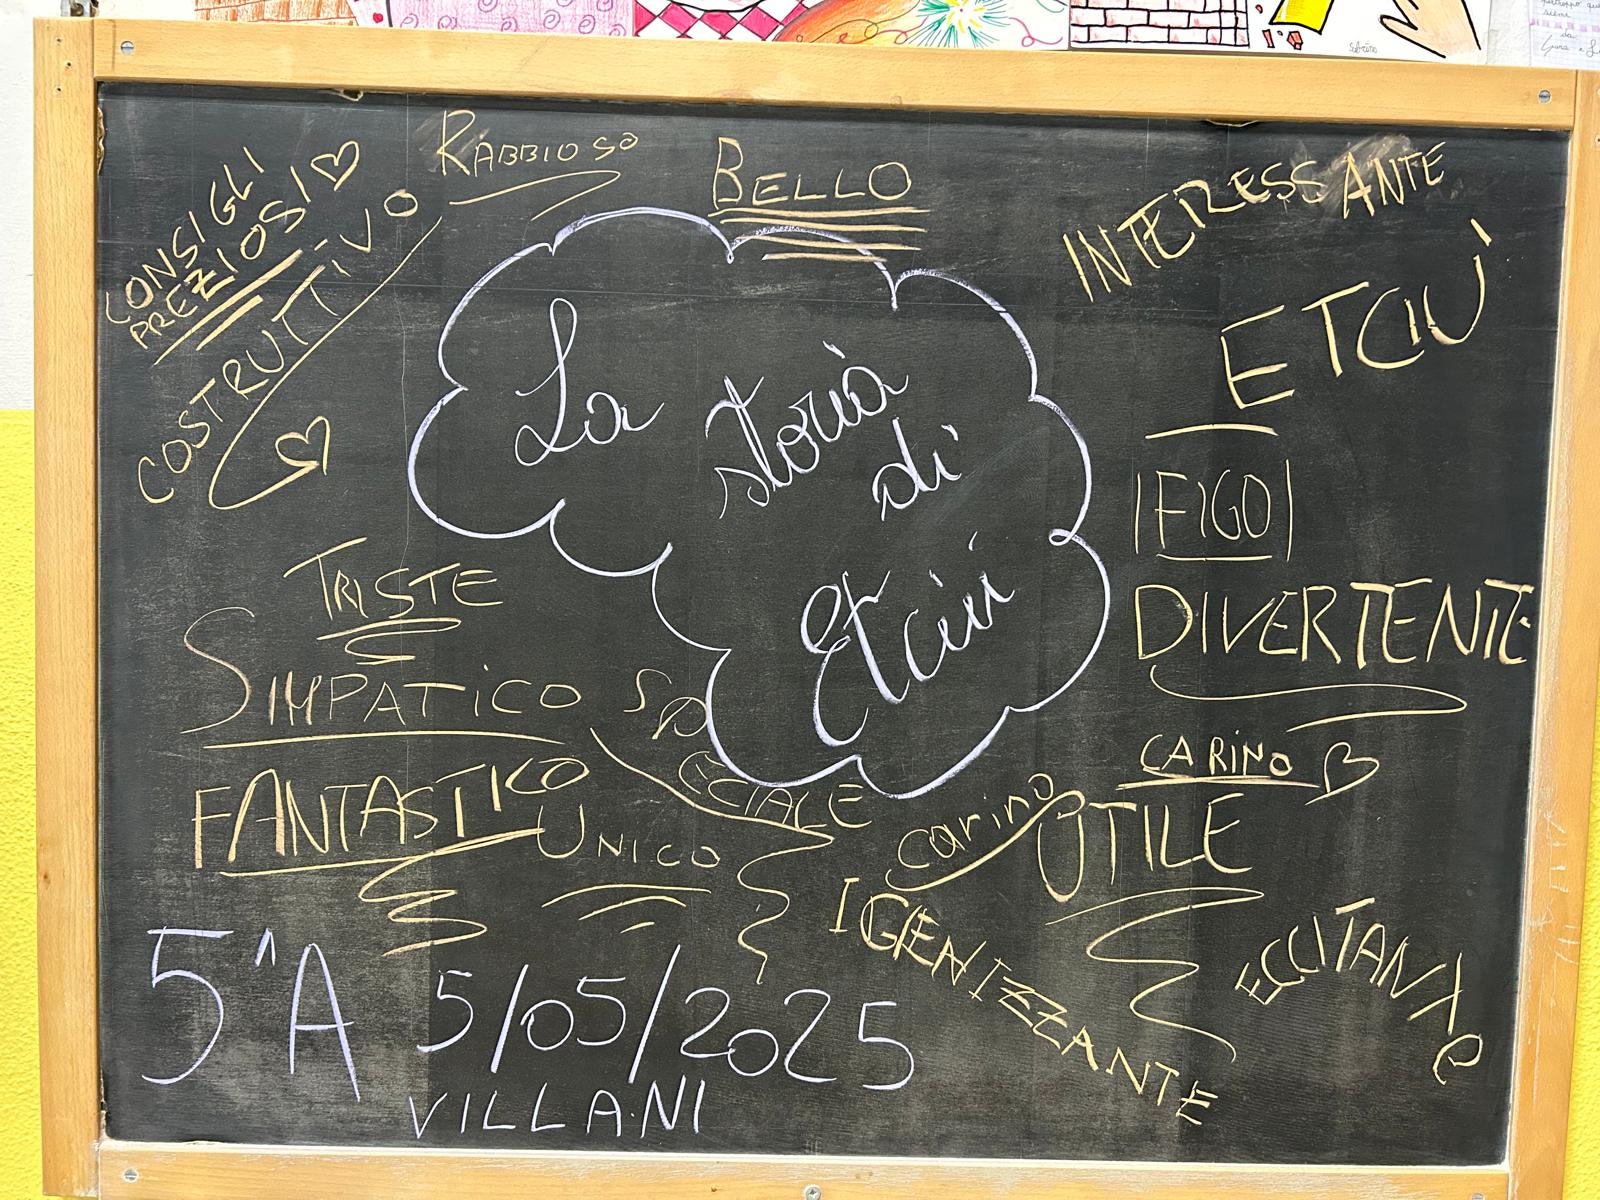 RABBIOSO
BELLO
INTERESSANTE
CONSIGLI
PREZIOSI
COSTRUTTIVO
ETCIÙ
La storia
di
Etciù
FIGO
TRISTE
DIVERTENTE
SIMPATICO
SPECIALE
CARINO
FANTASTICO
UNICO
carino
UTILE
IGENIZZANTE
ECCITANTe
5^A 5/05/2025
VILLANI
Sabrina